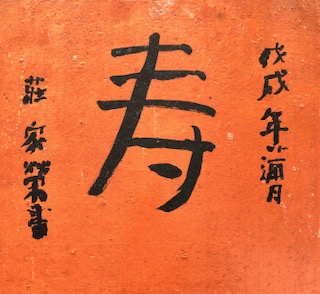 戊戌年月
寿
莊家榮書